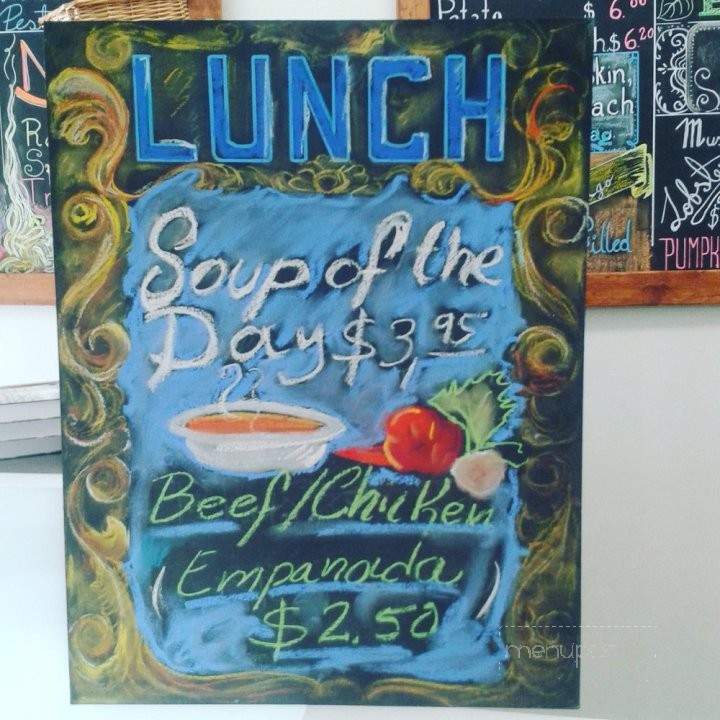 LUNCH
Soup of the
Day $3,95
Beef/Chicken
(Empanada)
$2.50
Potato $ 6.00
$6.20
PUMPK
menupix